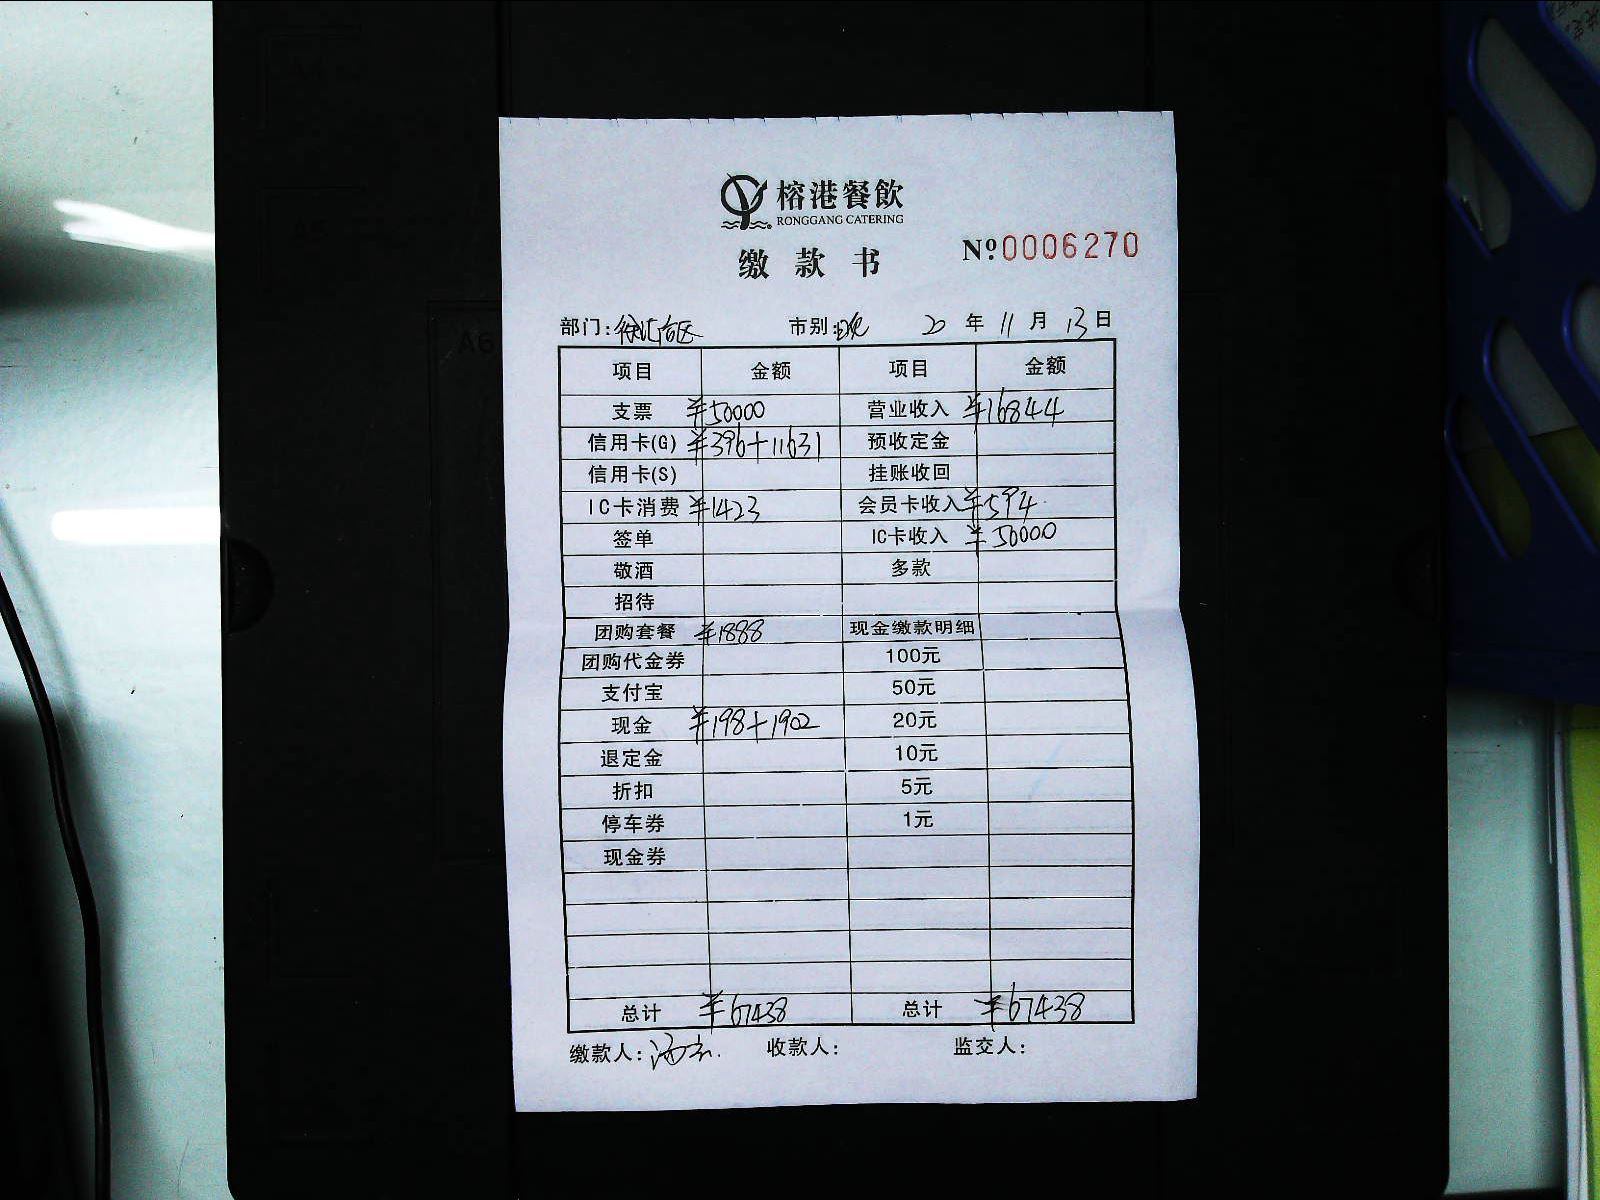 榕港餐飲
RONGGANG CATERING
缴款书
Nº0006270
部门: 市别:晚 20年11月13日
项目 金额 项目 金额
支票 ¥50000 营业收入 ¥16844
信用卡(G) ¥396+11631 预收定金
信用卡(S) 挂账收回
IC卡消费 ¥1423 会员卡收入 ¥594
签单 IC卡收入 ¥50000
敬酒 多款
招待
团购套餐 ¥1888 现金缴款明细
团购代金券 100元
支付宝 50元
现金 ¥198+1902 20元
退定金 10元
折扣 5元
停车券 1元
现金券
总计 ¥67438 总计 ¥67438
缴款人: 收款人: 监交人: